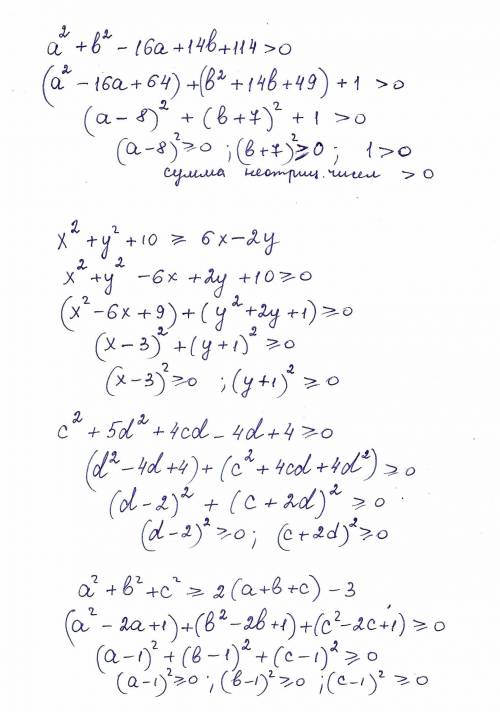 a² + b² - 16a + 14b + 114 > 0
(a² - 16a + 64) + (b² + 14b + 49) + 1 > 0
(a - 8)² + (b + 7)² + 1 > 0
(a - 8)² ≥ 0 ; (b + 7)² ≥ 0 ; 1 > 0
сумма неотриц. чисел > 0
x² + y² + 10 ≥ 6x - 2y
x² + y² - 6x + 2y + 10 ≥ 0
(x² - 6x + 9) + (y² + 2y + 1) ≥ 0
(x - 3)² + (y + 1)² ≥ 0
(x - 3)² ≥ 0 ; (y + 1)² ≥ 0
c² + 5d² + 4cd - 4d + 4 ≥ 0
(d² - 4d + 4) + (c² + 4cd + 4d²) ≥ 0
(d - 2)² + (c + 2d)² ≥ 0
(d - 2)² ≥ 0 ; (c + 2d)² ≥ 0
a² + b² + c² ≥ 2(a + b + c) - 3
(a² - 2a + 1) + (b² - 2b + 1) + (c² - 2c + 1) ≥ 0
(a - 1)² + (b - 1)² + (c - 1)² ≥ 0
(a - 1)² ≥ 0 ; (b - 1)² ≥ 0 ; (c - 1)² ≥ 0